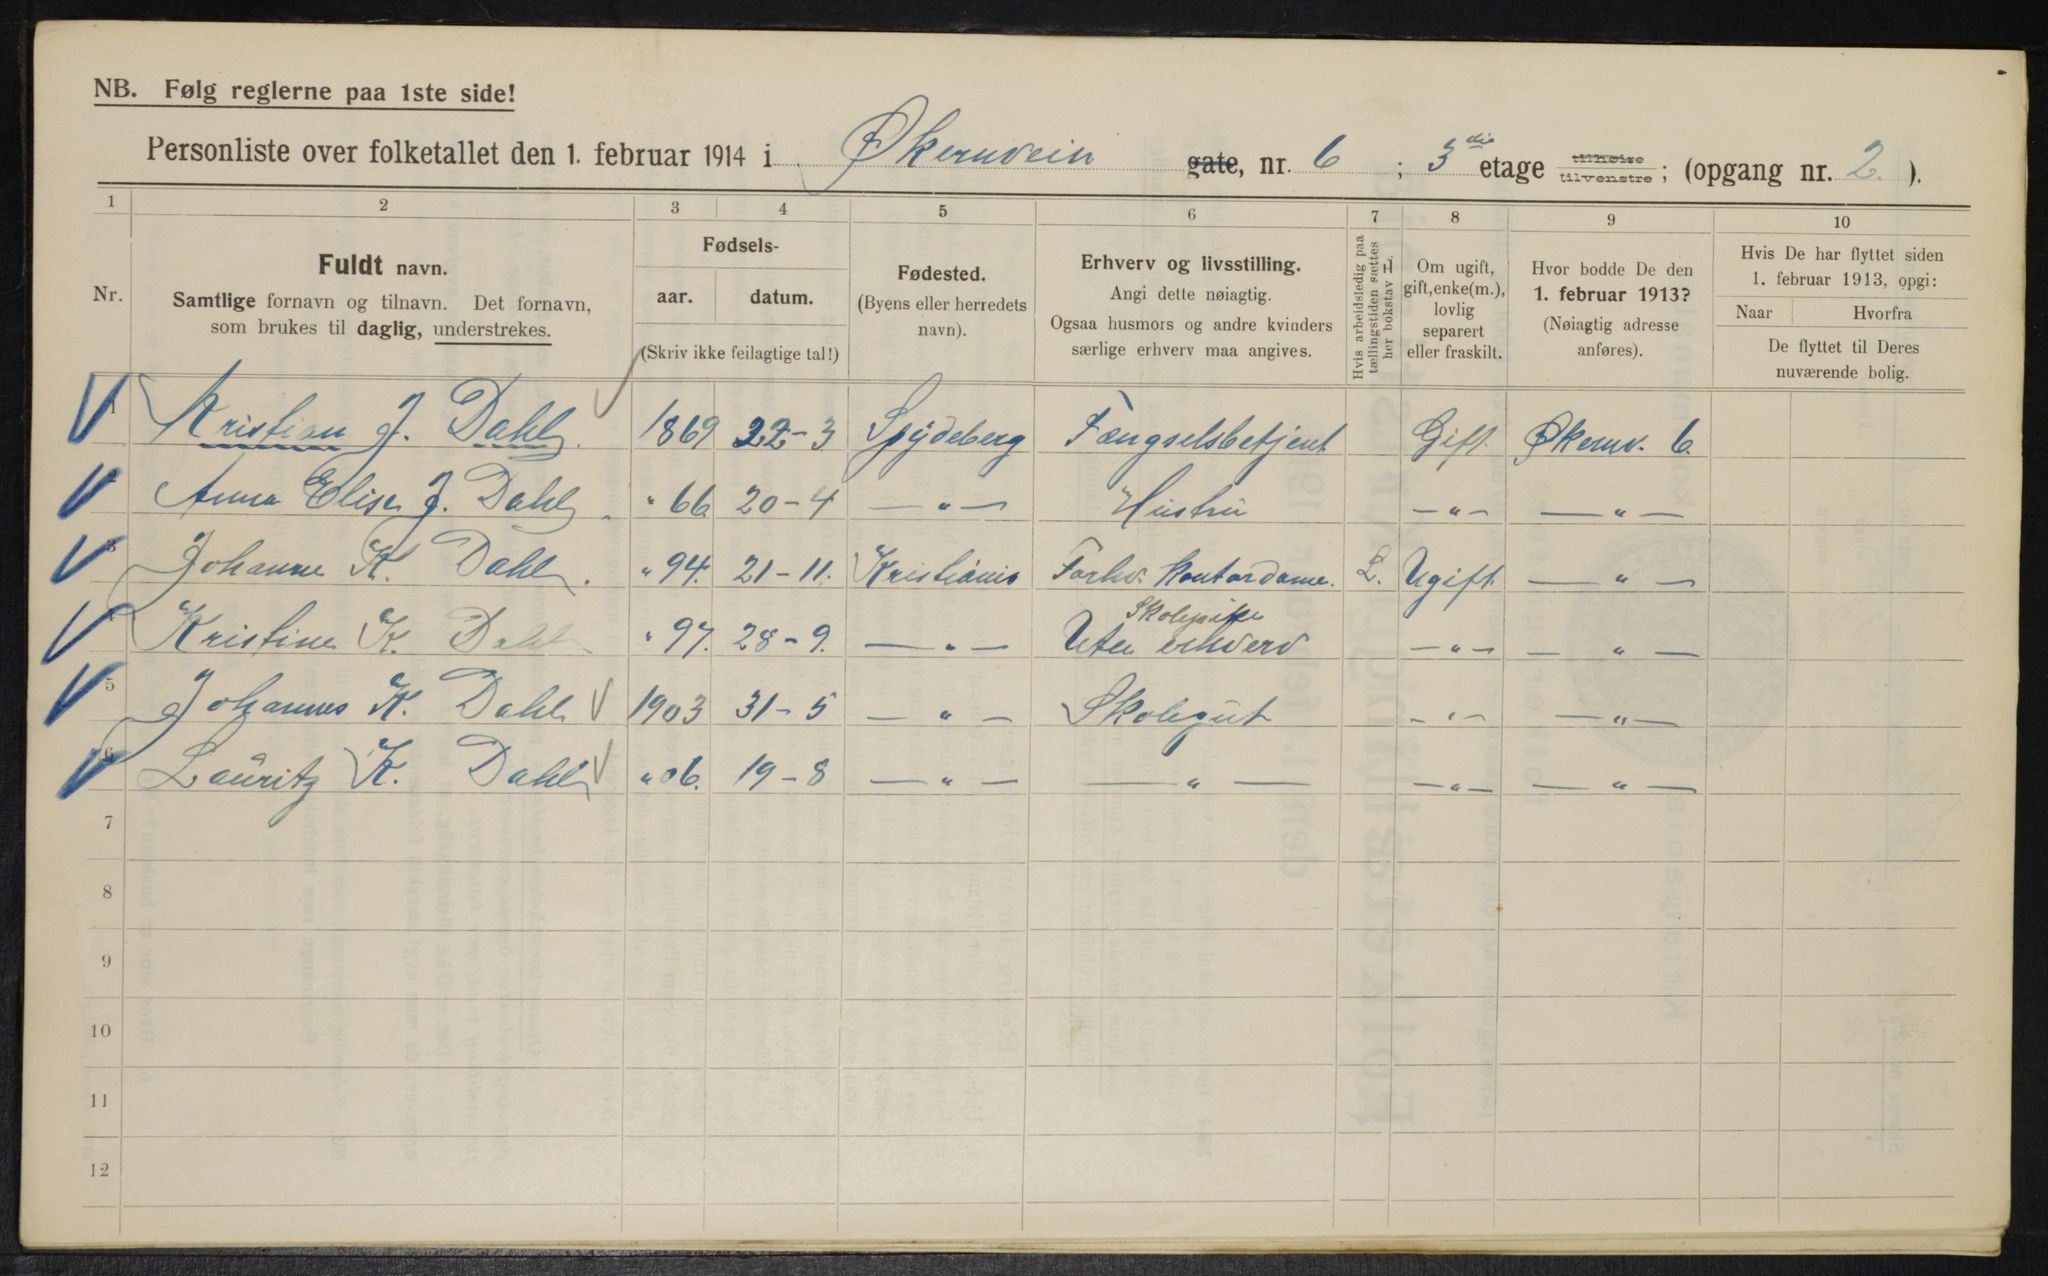 NB. Følg reglerne paa 1ste side!
Personliste over folketallet den 1. februar 1914 i Økernvein gate, nr. 6 ; 3die etage tilhøire tilvenstre ; (opgang nr. 2. ).
1 2 3 4 5 6 7 8 9 10
Nr.
Fuldt navn.
Samtlige fornavn og tilnavn. Det fornavn,
som brukes til daglig, understrekes.
Fødsels-
aar. datum.
(Skriv ikke feilagtige tal!)
Fødested.
(Byens eller herredets
navn).
Erhverv og livsstilling.
Angi dette nøiagtig.
Ogsaa husmors og andre kvinders
særlige erhverv maa angives.
Hvis arbeidsledig paa
tællingstiden sættes
her bokstav L.
Om ugift,
gift, enke(m.),
lovlig
separert
eller fraskilt.
Hvor bodde De den
1. februar 1913?
(Nøiagtig adresse
anføres).
Hvis De har flyttet siden
1. februar 1913, opgi:
Naar Hvorfra
De flyttet til Deres
nuværende bolig.
1 Kristian J. Dahl. 1869 22-3 Spydeberg Fængselsbetjent Gift Økernv. 6.
2 Anna Elise J. Dahl. " 66 20-4 — " — Hustru — " — — " —
3 Johanne K. Dahl. " 94. 21-11. Kristiania Forhv. kontordame. L. Ugift. — " —
Skolepike
4 Kristine K. Dahl " 97. 28-9. — " — Uten erhverv — " — — " —
5 Johannes K. Dahl 1903 31-5 — " — Skolegut — " — — " —
6 Lauritz K. Dahl " 06. 19-8 — " — — " — — " — — " —
7
8
9
10
11
12